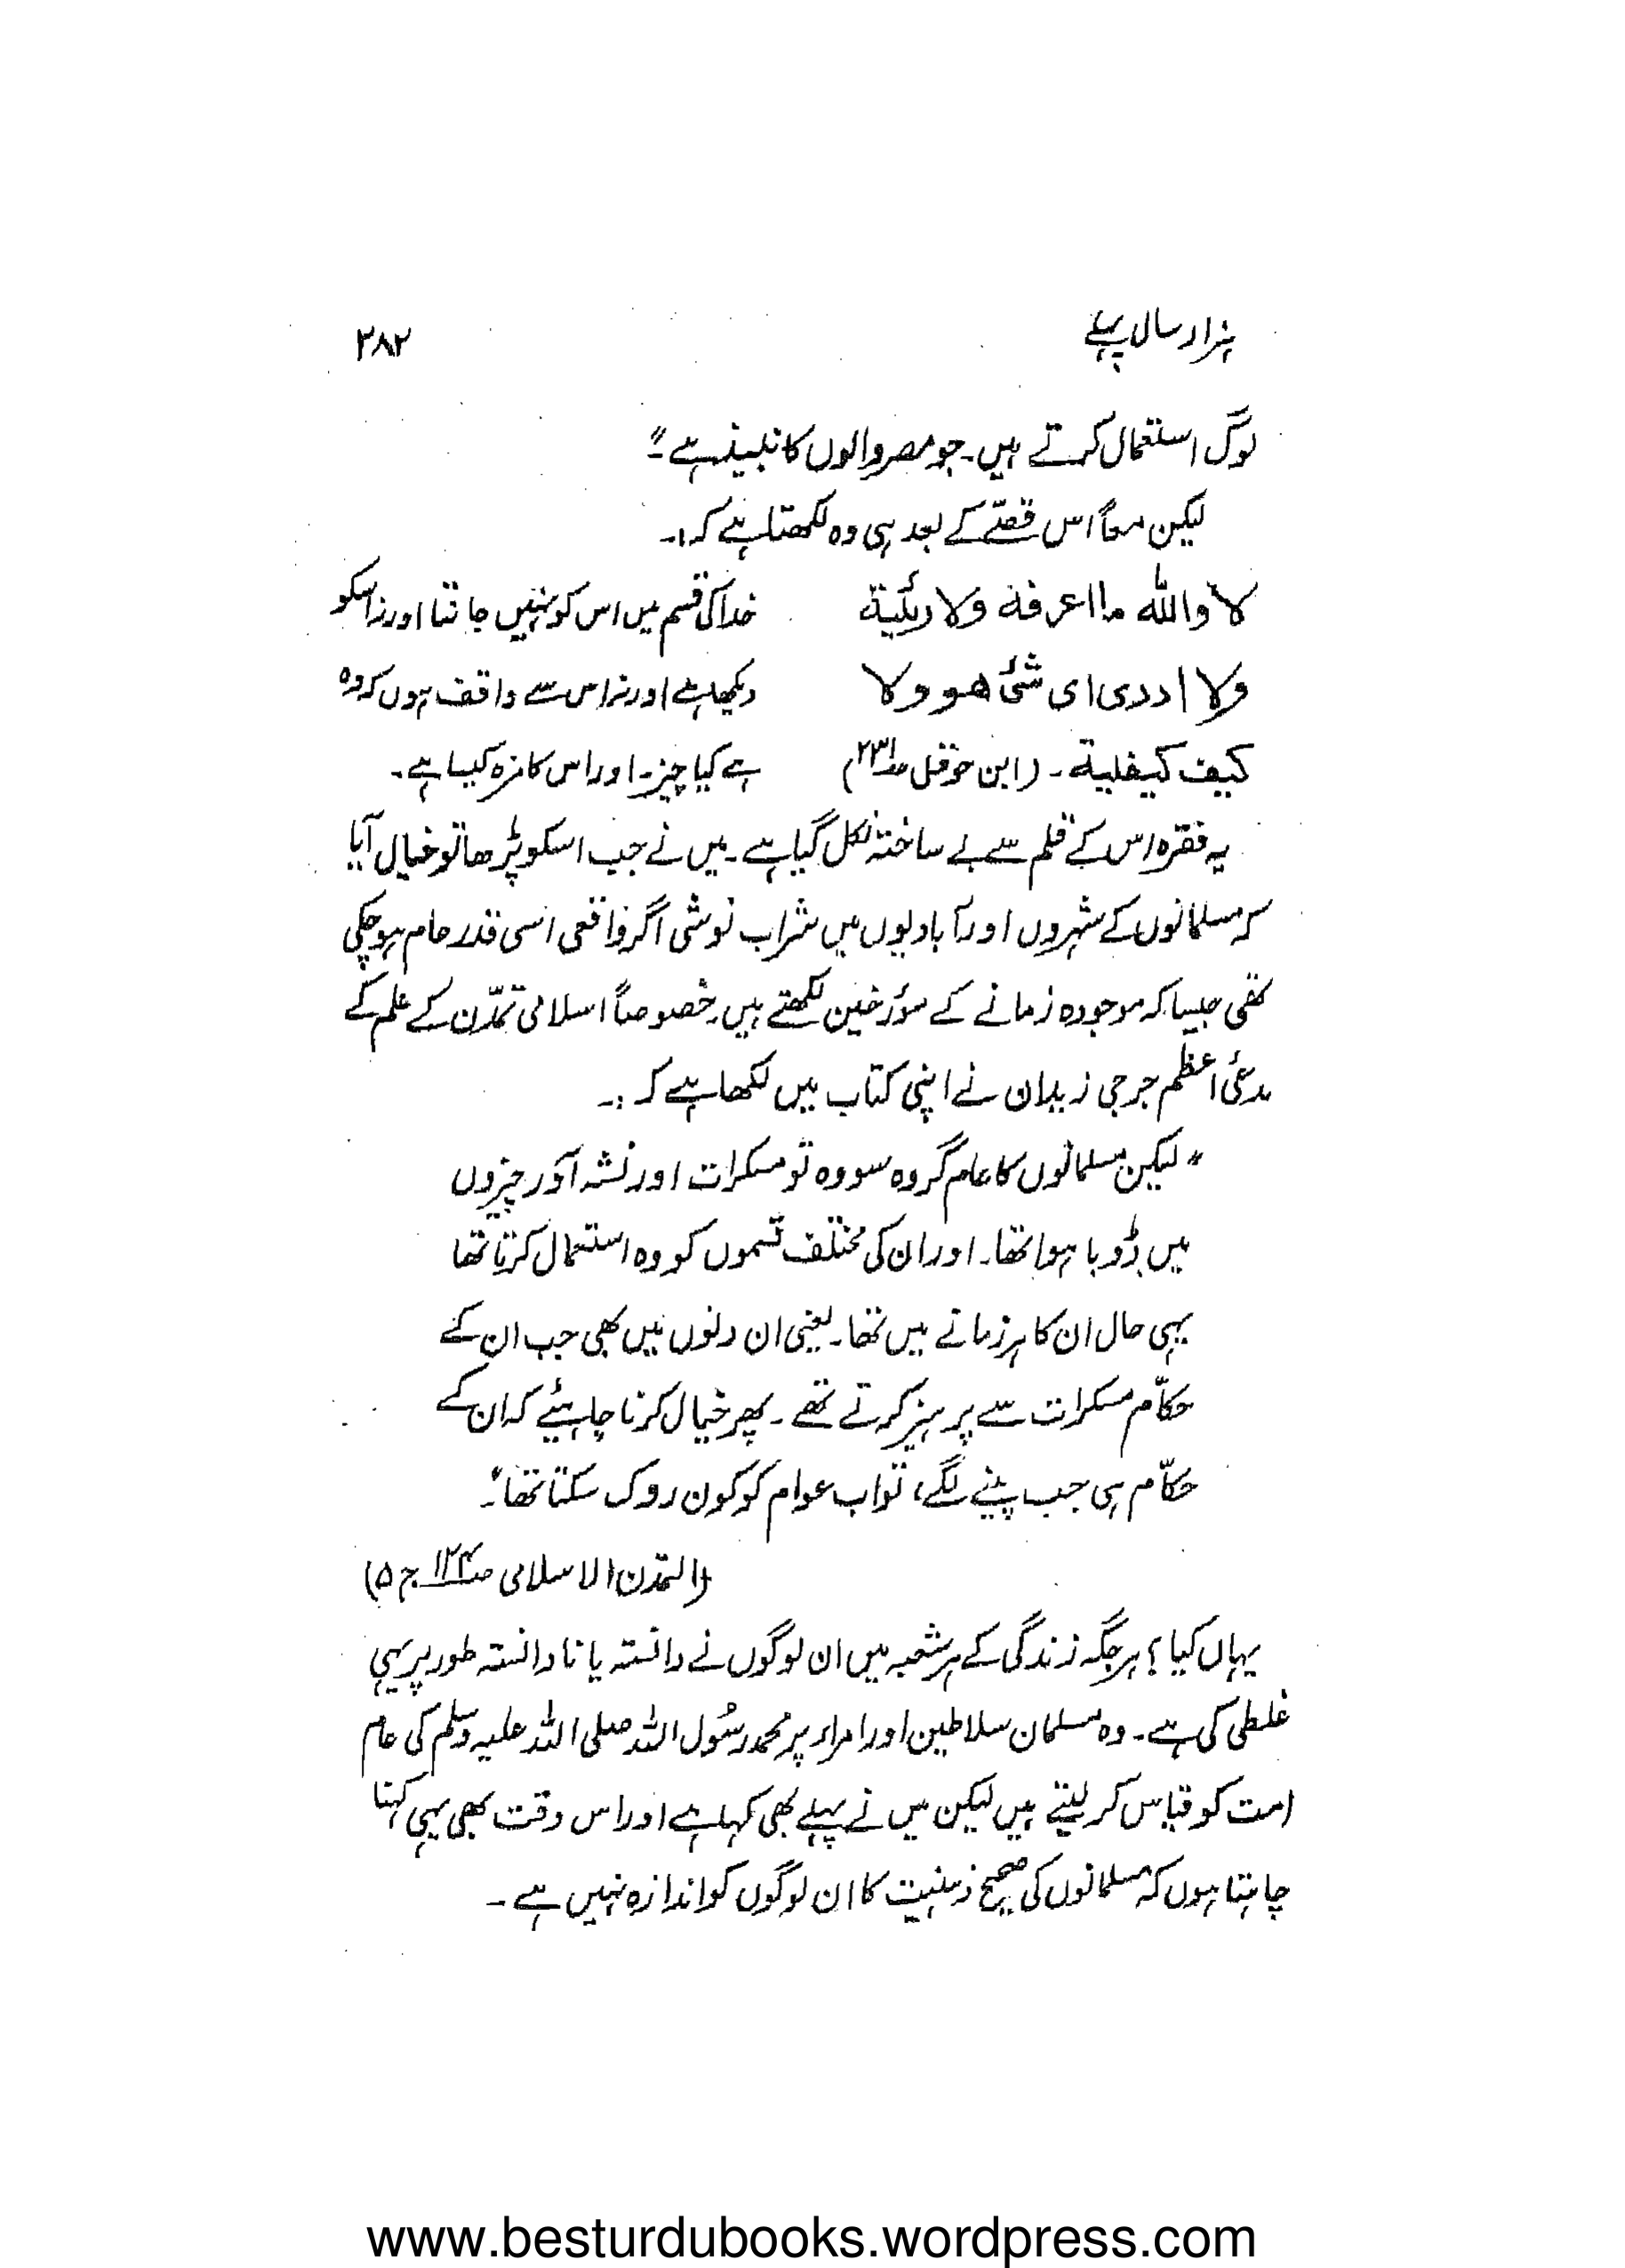 ہزار سال پہلے
۲۸۲
لوگ استعمال کرتے ہیں۔ جو مصر والوں کا نبیذ ہے"۔
لیکن معاً اس قصّے کے بعد ہی وہ لکھتا ہے کہ:۔
لا واللہ ما اعرفة ولا رئیة
خدا کی قسم میں اس کو نہیں جانتا اور نہ اسکو
ولا اددی ای شئ هو ولا
دیکھا ہے اور نہ اس سے واقف ہوں کہ وہ
کیف کیفلیة۔ (ابن حوقل ص۲۳۱)
ہے کیا چیز۔ اور اس کا مزہ کیسا ہے۔
یہ فقرہ اس کے قلم سے بے ساختہ نکل گیا ہے۔ میں نے جب اسکو پڑھا تو خیال آیا
کہ مسلمانوں کے شہروں اور آبادیوں میں شراب نوشی اگر واقعی اسی قدر عام ہو چکی
تھی جیسا کہ موجودہ زمانے کے مؤرخین لکھتے ہیں۔ خصوصاً اسلامی تمدّن کے علم کے
مدعئ اعظم جرجی زیدان نے اپنی کتاب میں لکھا ہے کہ:۔
"لیکن مسلمانوں کا عام گروہ سو وہ تو مسکرات اور نشہ آور چیزوں
میں ڈوبا ہوا تھا۔ اور ان کی مختلف قسموں کو وہ استعمال کرتا تھا
یہی حال ان کا ہر زمانے میں تھا۔ یعنی ان دنوں میں بھی جب ان کے
حکاّم مسکرات سے پرہیز کرتے تھے۔ پھر خیال کرنا چاہیئے کہ ان کے
حکاّم ہی جب پینے لگے، تو اب عوام کو کون روک سکتا تھا"۔
(التمدن الاسلامی ص۱۲۴ ج ۵)
یہاں کیا؟ ہر جگہ زندگی کے ہر شعبہ میں ان لوگوں نے دانستہ یا نادانستہ طور پر یہی
غلطی کی ہے۔ وہ مسلمان سلاطین اور امراء پر محمد رسُول اللہ صلی اللہ علیہ وسلم کی عام
امت کو قیاس کر لیتے ہیں لیکن میں نے پہلے بھی کہا ہے اور اس وقت بھی یہی کہنا
چاہتا ہوں کہ مسلمانوں کی صحیح ذہنیت کا ان لوگوں کو اندازہ نہیں ہے۔
www.besturdubooks.wordpress.com